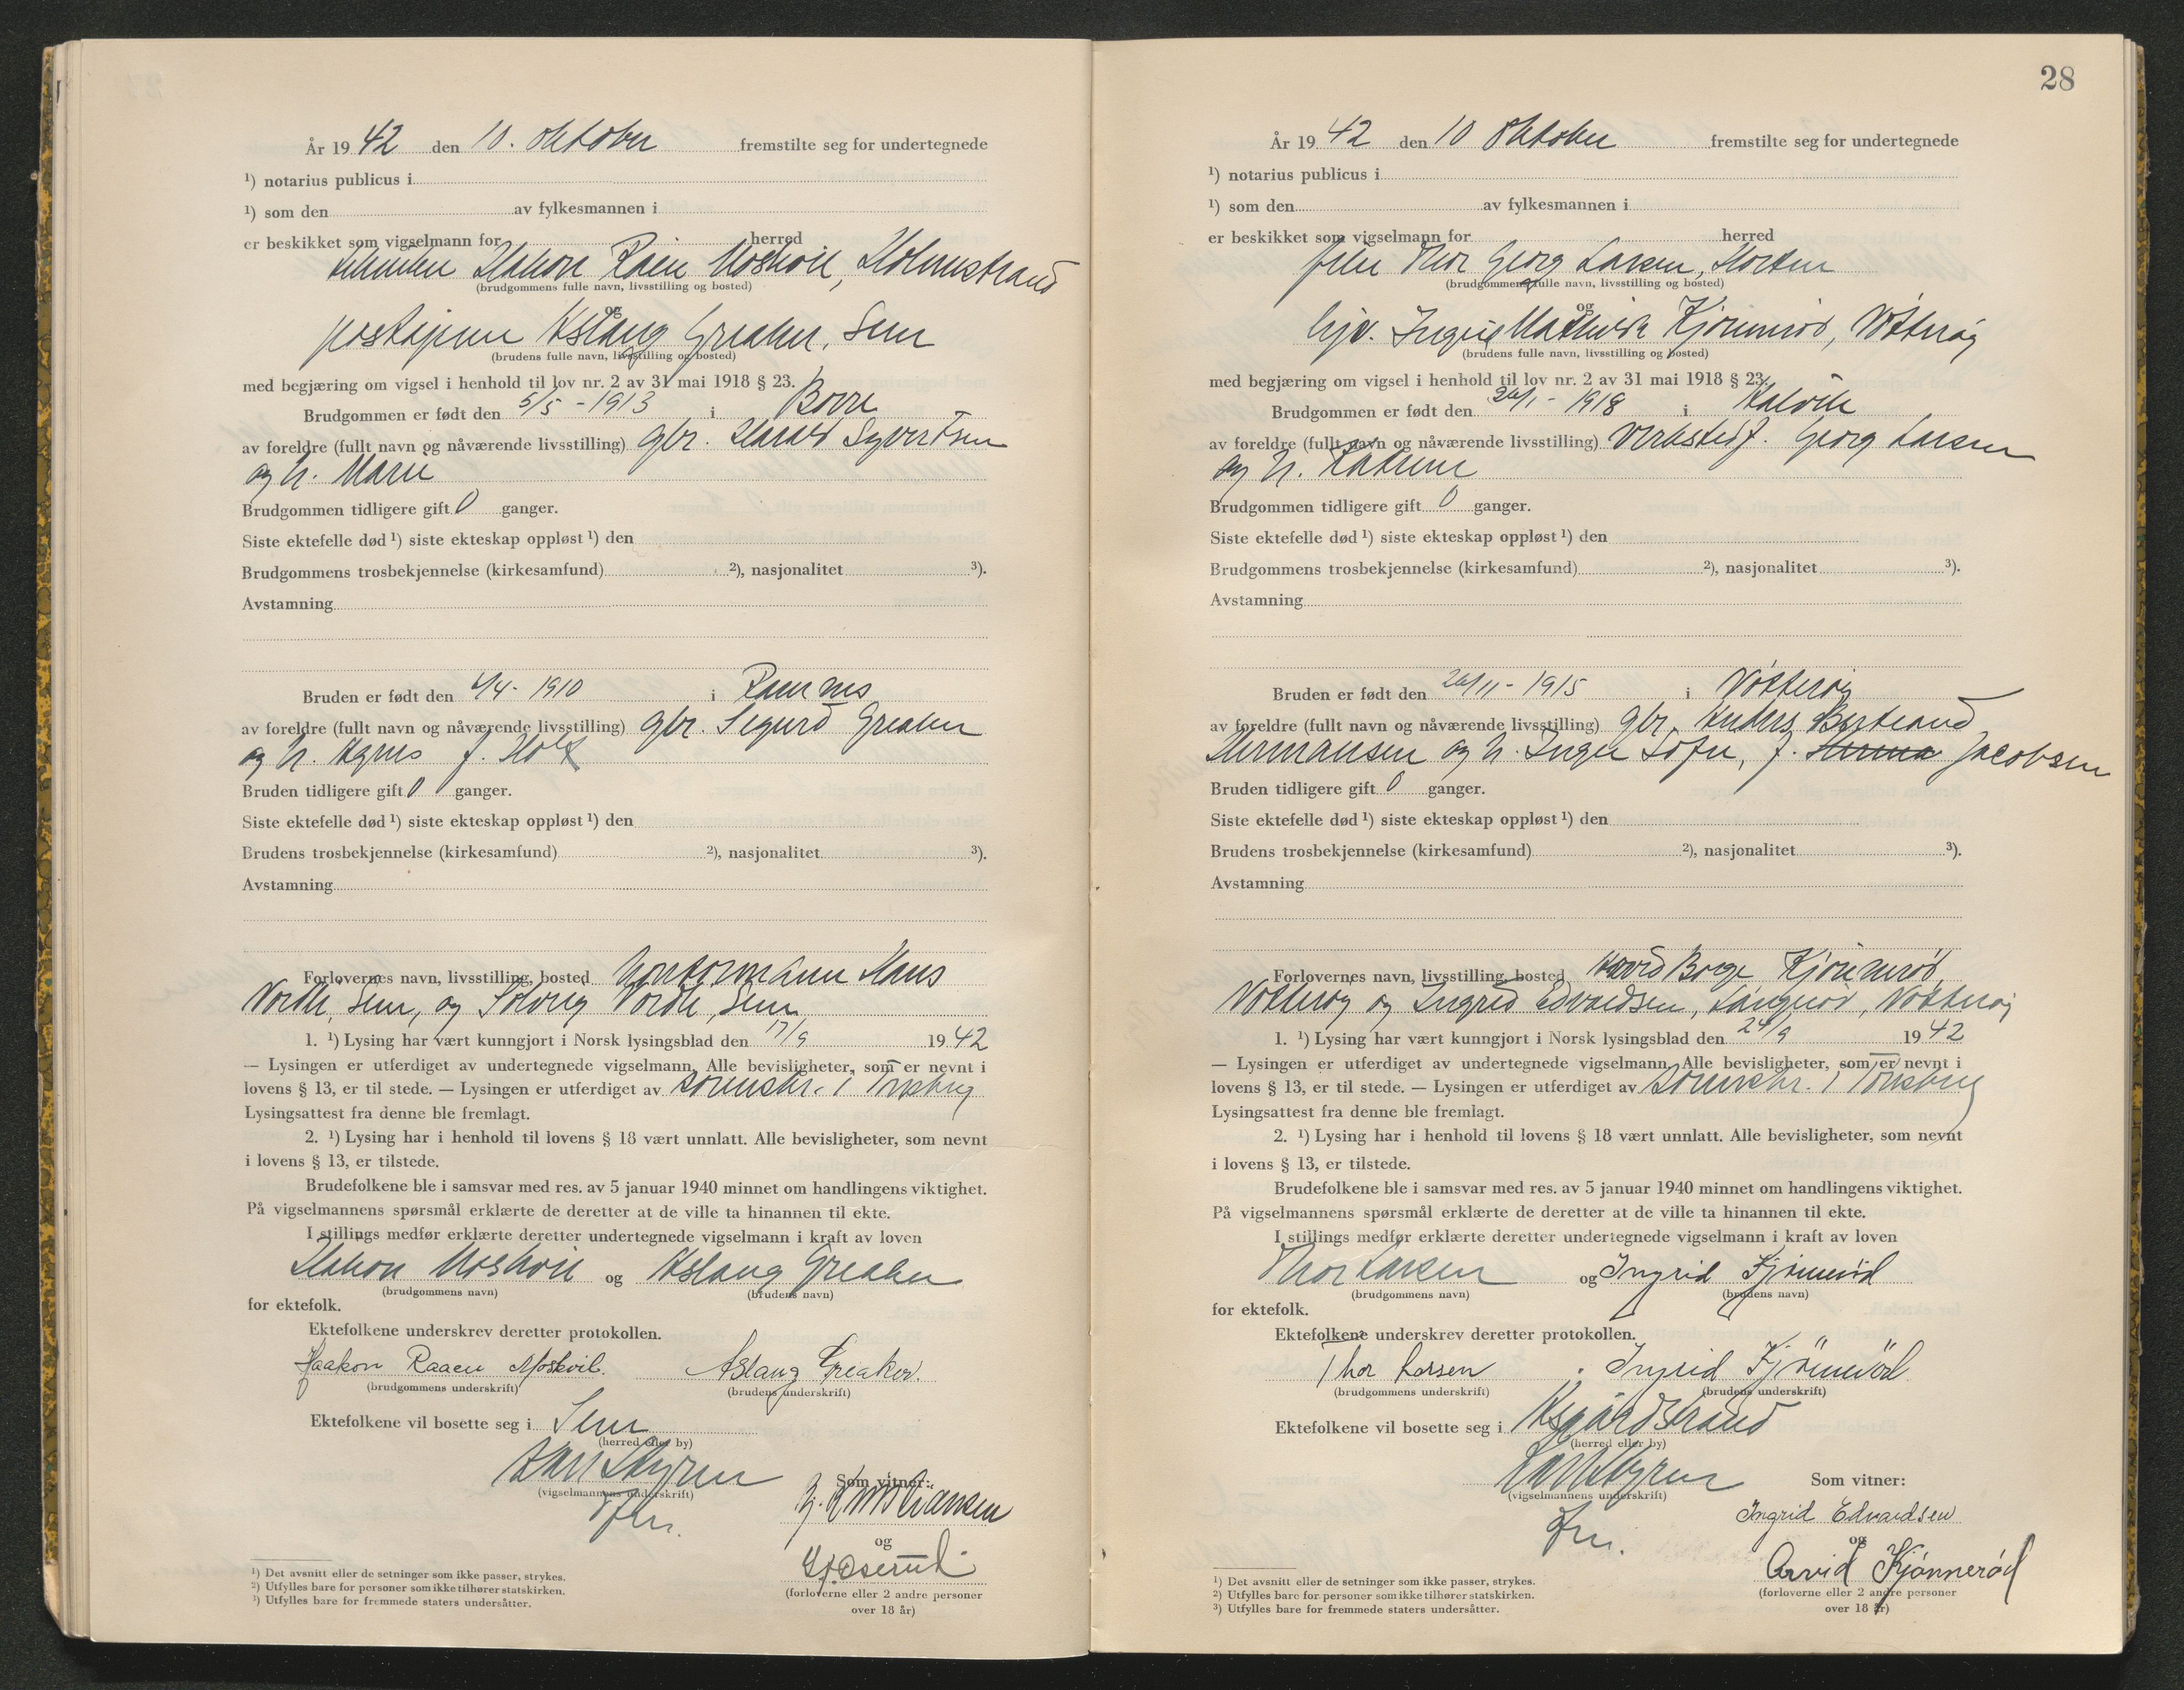 År 19 42 den 10. oktober fremstilte seg for undertegnede
¹) notarius publicus i
¹) som den av fylkesmannen i
er beskikket som vigselmann for herred
Hakon Raen Moskvil, Holmestrand
(brudgommens fulle navn, livsstilling og bosted)
og
Aslaug Greaker, Sem
(brudens fulle navn, livsstilling og bosted)
med begjæring om vigsel i henhold til lov nr. 2 av 31 mai 1918 § 23.
Brudgommen er født den 5/5 - 1913 i Borre
av foreldre (fullt navn og nåværende livsstilling) gbr. Harald Syvertsen
og h. Marie
Brudgommen tidligere gift 0 ganger.
Siste ektefelle død ¹) siste ekteskap oppløst ¹) den
Brudgommens trosbekjennelse (kirkesamfund) ²), nasjonalitet ³).
Avstamning
Bruden er født den 4/4 - 1910 i Ramnes
av foreldre (fullt navn og nåværende livsstilling) gbr. Sigurd Greaker
og h. Agnes f. Holt
Bruden tidligere gift 0 ganger.
Siste ektefelle død ¹) siste ekteskap oppløst ¹) den
Brudens trosbekjennelse (kirkesamfund) ²), nasjonalitet ³).
Avstamning
Forlovernes navn, livsstilling, bosted kontormann Hans
Nordli, Sem, og Solveig Nordli, Sem
1. ¹) Lysing har vært kunngjort i Norsk lysingsblad den 17/9 19 42
— Lysingen er utferdiget av undertegnede vigselmann. Alle bevisligheter, som er nevnt i
lovens § 13, er til stede. — Lysingen er utferdiget av sorenskr. i Tønsberg
Lysingsattest fra denne ble fremlagt.
2. ¹) Lysing har i henhold til lovens § 18 vært unnlatt. Alle bevisligheter, som nevnt
i lovens § 13, er tilstede.
Brudefolkene ble i samsvar med res. av 5 januar 1940 minnet om handlingens viktighet.
På vigselmannens spørsmål erklærte de deretter at de ville ta hinannen til ekte.
I stillings medfør erklærte deretter undertegnede vigselmann i kraft av loven
Hakon Moskvil og Aslaug Greaker
(brudgommens navn) (brudens navn)
for ektefolk.
Ektefolkene underskrev deretter protokollen.
Haakon Raaen Moskvil. Aslaug Greaker.
(brudgommens underskrift) (brudens underskrift)
Ektefolkene vil bosette seg i Sem
(herred eller by)
(vigselmannens underskrift)
Som vitner:
Kristiansen
og
(forloverne eller 2 andre personer
over 18 år)
¹) Det avsnitt eller de setninger som ikke passer, strykes.
²) Utfylles bare for personer som ikke tilhører statskirken.
³) Utfylles bare for fremmede staters undersåtter.
28
År 19 42 den 10 oktober fremstilte seg for undertegnede
¹) notarius publicus i
¹) som den av fylkesmannen i
er beskikket som vigselmann for herred
filer Thor Georg Larsen, Horten
(brudgommens fulle navn, livsstilling og bosted)
og
Ingrid Mathilde Kjønnerød, Nøtterøy
(brudens fulle navn, livsstilling og bosted)
med begjæring om vigsel i henhold til lov nr. 2 av 31 mai 1918 § 23.
Brudgommen er født den 26/1 - 1918 i
av foreldre (fullt navn og nåværende livsstilling) verkstedf. Georg Larsen
og h. Katrine
Brudgommen tidligere gift 0 ganger.
Siste ektefelle død ¹) siste ekteskap oppløst ¹) den
Brudgommens trosbekjennelse (kirkesamfund) ²), nasjonalitet ³).
Avstamning
Bruden er født den 26/11 - 1915 i Nøtterøy
av foreldre (fullt navn og nåværende livsstilling) gbr. Anders Bertrand
Hermansen og h. Inga Sofie, f. Jacobsen
Bruden tidligere gift 0 ganger.
Siste ektefelle død ¹) siste ekteskap oppløst ¹) den
Brudens trosbekjennelse (kirkesamfund) ²), nasjonalitet ³).
Avstamning
Forlovernes navn, livsstilling, bosted Arvid Borge Kjønnerød,
Nøtterøy og Ingrid Edvardsen, Nøtterøy
1. ¹) Lysing har vært kunngjort i Norsk lysingsblad den 24/9 19 42
— Lysingen er utferdiget av undertegnede vigselmann. Alle bevisligheter, som er nevnt i
lovens § 13, er til stede. — Lysingen er utferdiget av sorenskr. i Tønsberg
Lysingsattest fra denne ble fremlagt.
2. ¹) Lysing har i henhold til lovens § 18 vært unnlatt. Alle bevisligheter, som nevnt
i lovens § 13, er tilstede.
Brudefolkene ble i samsvar med res. av 5 januar 1940 minnet om handlingens viktighet.
På vigselmannens spørsmål erklærte de deretter at de ville ta hinannen til ekte.
I stillings medfør erklærte deretter undertegnede vigselmann i kraft av loven
Thor Larsen og Ingrid Kjønnerød
(brudgommens navn) (brudens navn)
for ektefolk.
Ektefolkene underskrev deretter protokollen.
Thor Larsen Ingrid Kjönneröd
(brudgommens underskrift) (brudens underskrift)
Ektefolkene vil bosette seg i Åsgårdstrand
(herred eller by)
(vigselmannens underskrift)
Som vitner:
Ingrid Edvardsen
og
Arvid Kjønnerød
(forloverne eller 2 andre personer
over 18 år)
¹) Det avsnitt eller de setninger som ikke passer, strykes.
²) Utfylles bare for personer som ikke tilhører statskirken.
³) Utfylles bare for fremmede staters undersåtter.